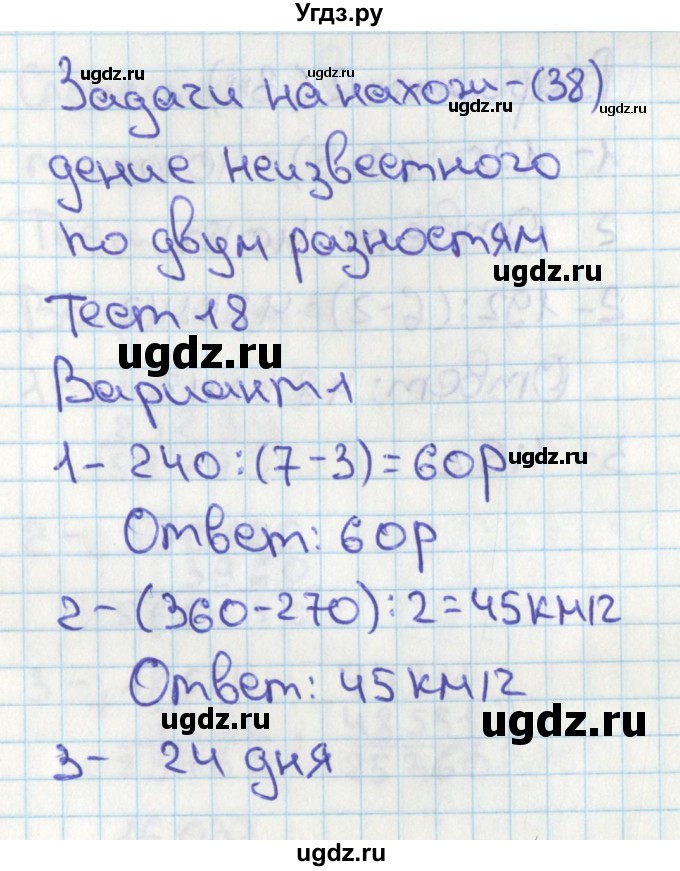 Угдз.ру
Задачи на нахож-(38)
дение неизвестного
по двум разностям
Тест 18
Вариант 1
1- 240:(7-3)=60р
Ответ: 60р
2- (360-270):2=45км/г
Ответ: 45км/г
3- 24 дня
ugdz.ru
ugdz.ru
ugdz.ru
ugdz.ru
ugdz.ru
ugdz.ru
ugdz.ru
ugdz.ru
ugdz.ru
ugdz.ru
ugdz.ru